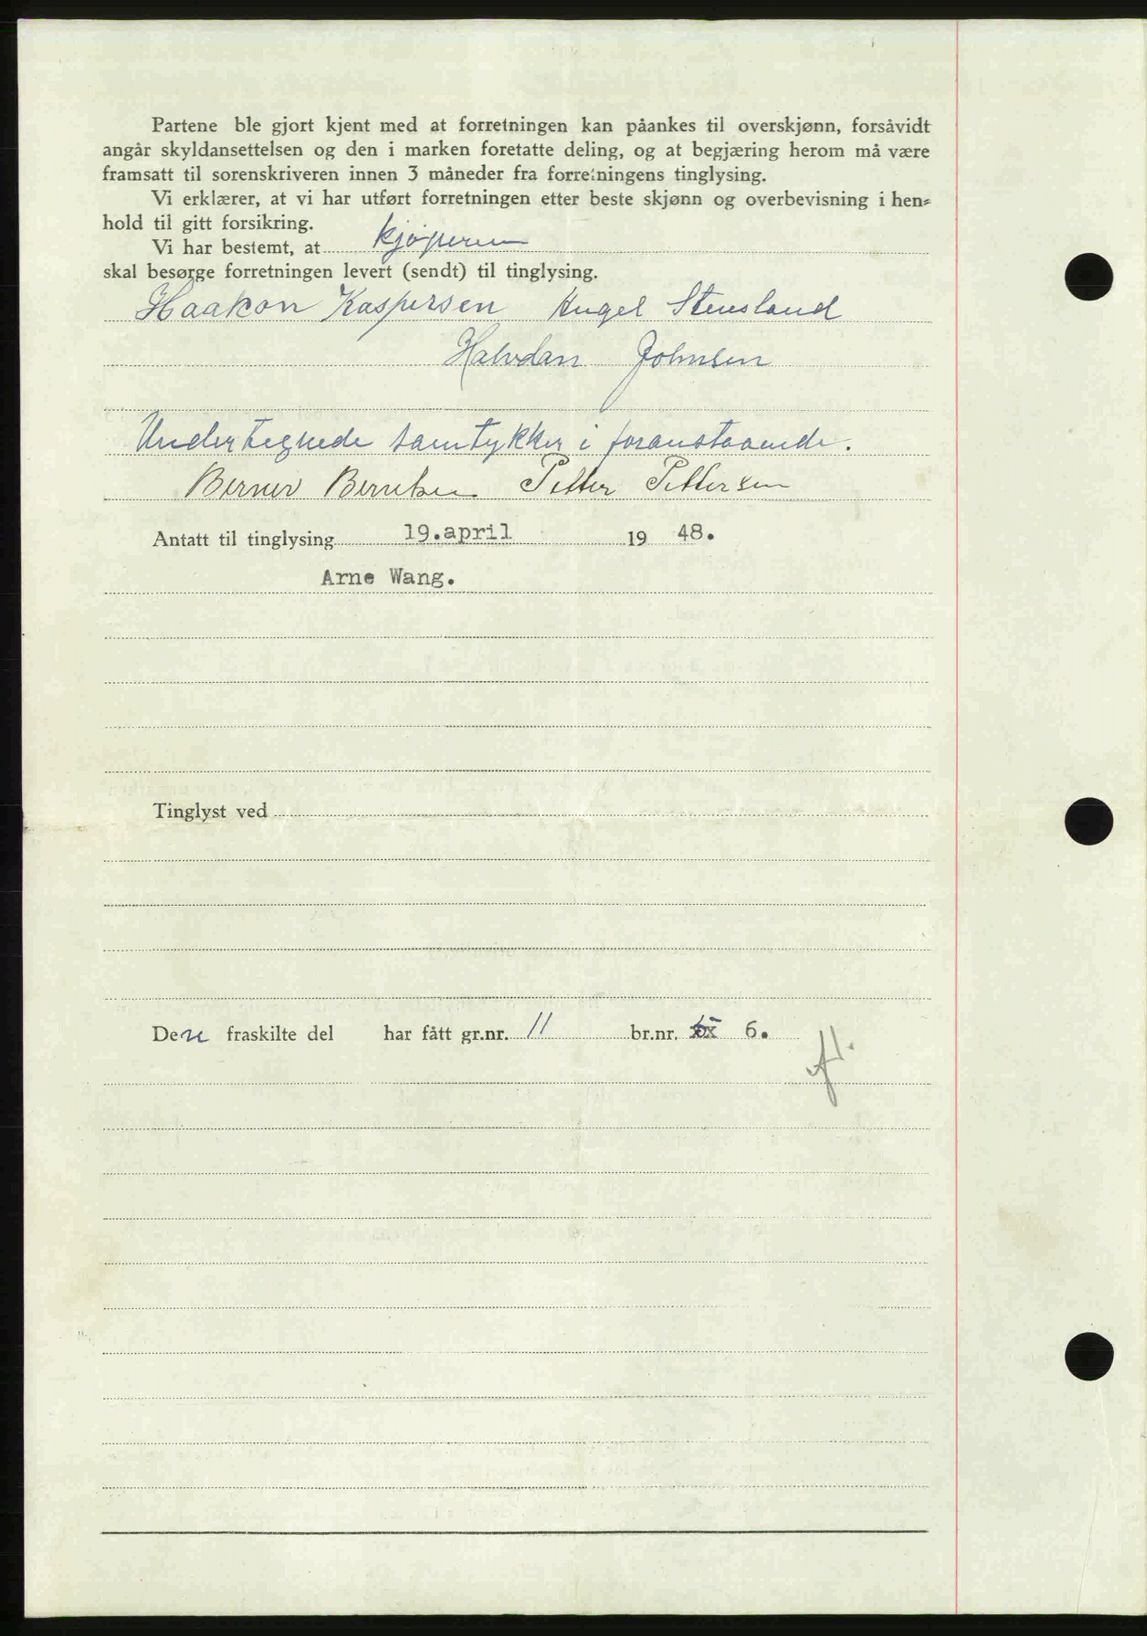 Partene ble gjort kjent med at forretningen kan påankes til overskjønn, forsåvidt
angår skyldansettelsen og den i marken foretatte deling, og at begjæring herom må være
framsatt til sorenskriveren innen 3 måneder fra forretningens tinglysing.
Vi erklærer, at vi har utført forretningen etter beste skjønn og overbevisning i hen-
hold til gitt forsikring.
Vi har bestemt, at kjøperen
skal besørge forretningen levert (sendt) til tinglysing.
Haakon Kaspersen Stensland
Halvdan Johnsen
Undertegnede samtykker i foranstaaende.
Berner Berntsen Petter Pettersen
Antatt til tinglysing 19.april 19 48.
Arne Wang.
Tinglyst ved
Den fraskilte del har fått gr.nr. 11 br.nr. 6.